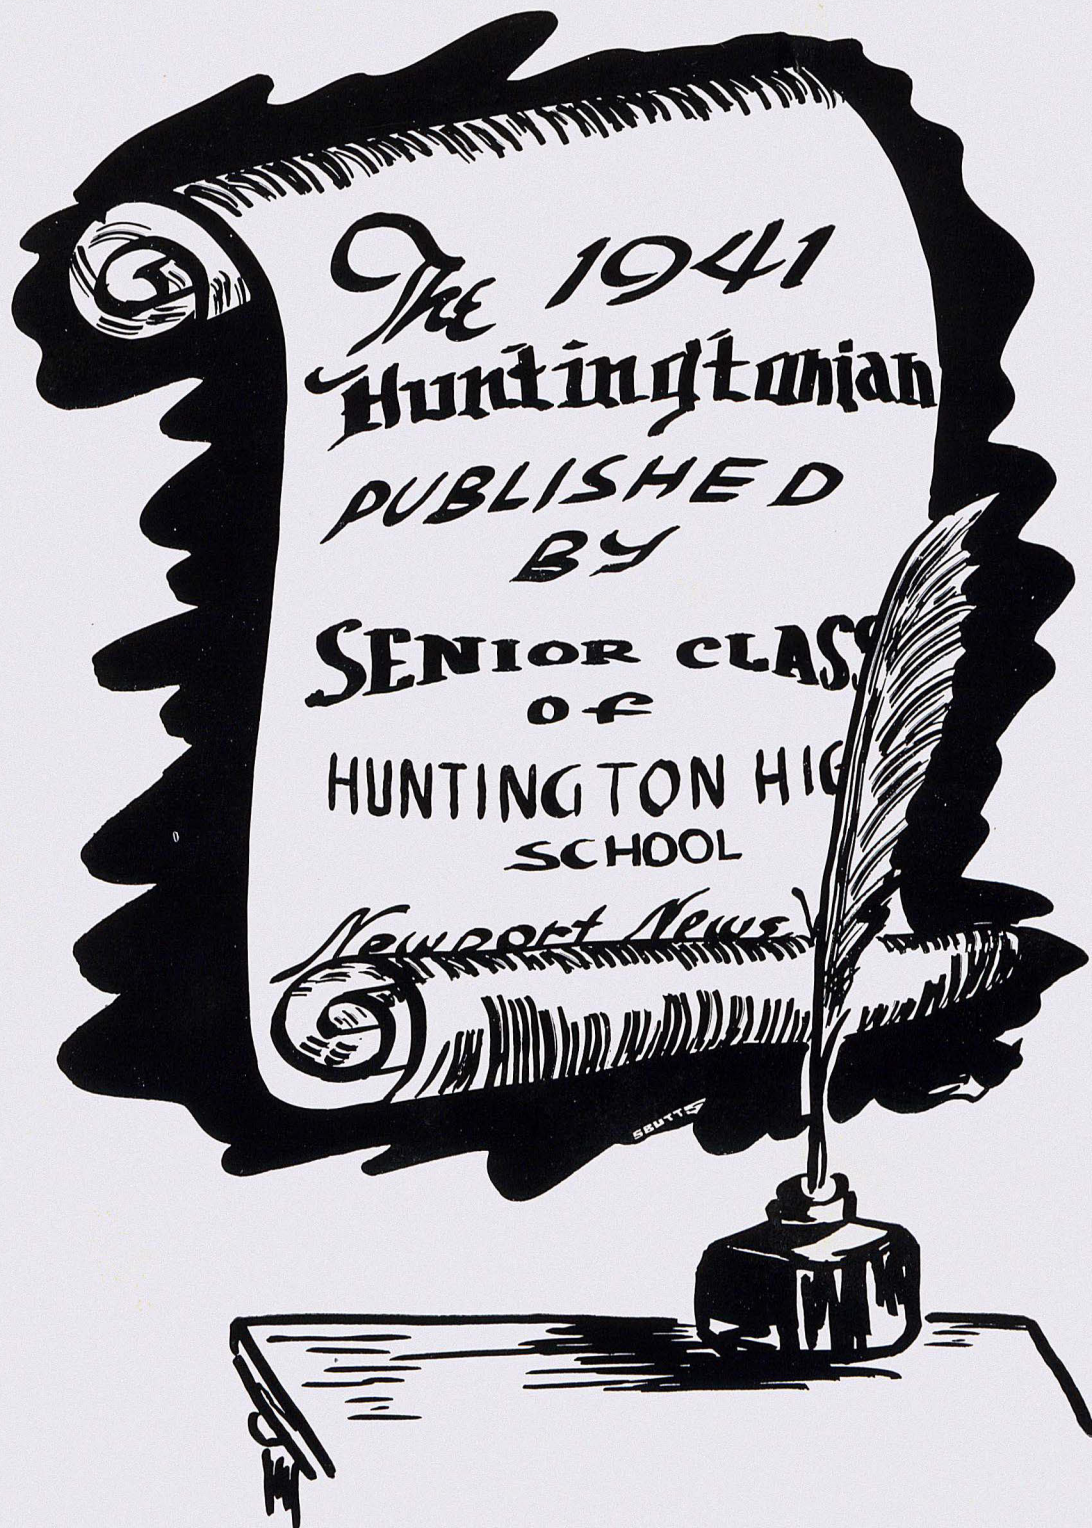 The 1941
Huntingtonian
PUBLISHED
BY
SENIOR CLASS
OF
HUNTINGTON HIG
SCHOOL
Newport News V
SBUTTS